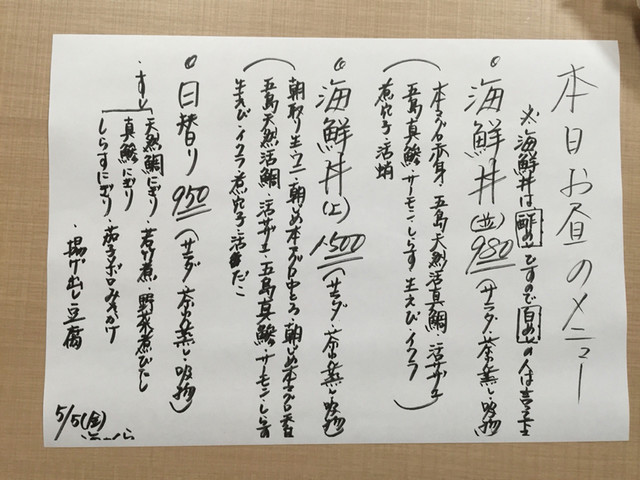 本日お昼のメニュー
※海鮮丼は酢めしですので白めしの人は言って
海鮮丼(並)980(サラダ・茶わん蒸し・吸物)
本マグロ赤身・五島天然活真鯛・活サザエ
五島真鯵・サーモン・しらす・生えび・イクラ
煮穴子・活蛸
海鮮丼(上)1500(サラダ・茶わん蒸し・吸物)
朝取り生ウニ・朝〆本マグロ中とろ・朝〆本マグロ赤身
五島天然活鯛・活サザエ・五島真鯵・サーモン・しらす
生えび・イクラ・煮穴子・活だこ
日替り950(サラダ・茶わん蒸し・吸物)
・すし 天然鯛にぎり・若竹煮・野菜煮びたし
真鯵にぎり
しらすにぎり・茄子ボロみそかけ
・揚げ出し豆腐
5/5(金)